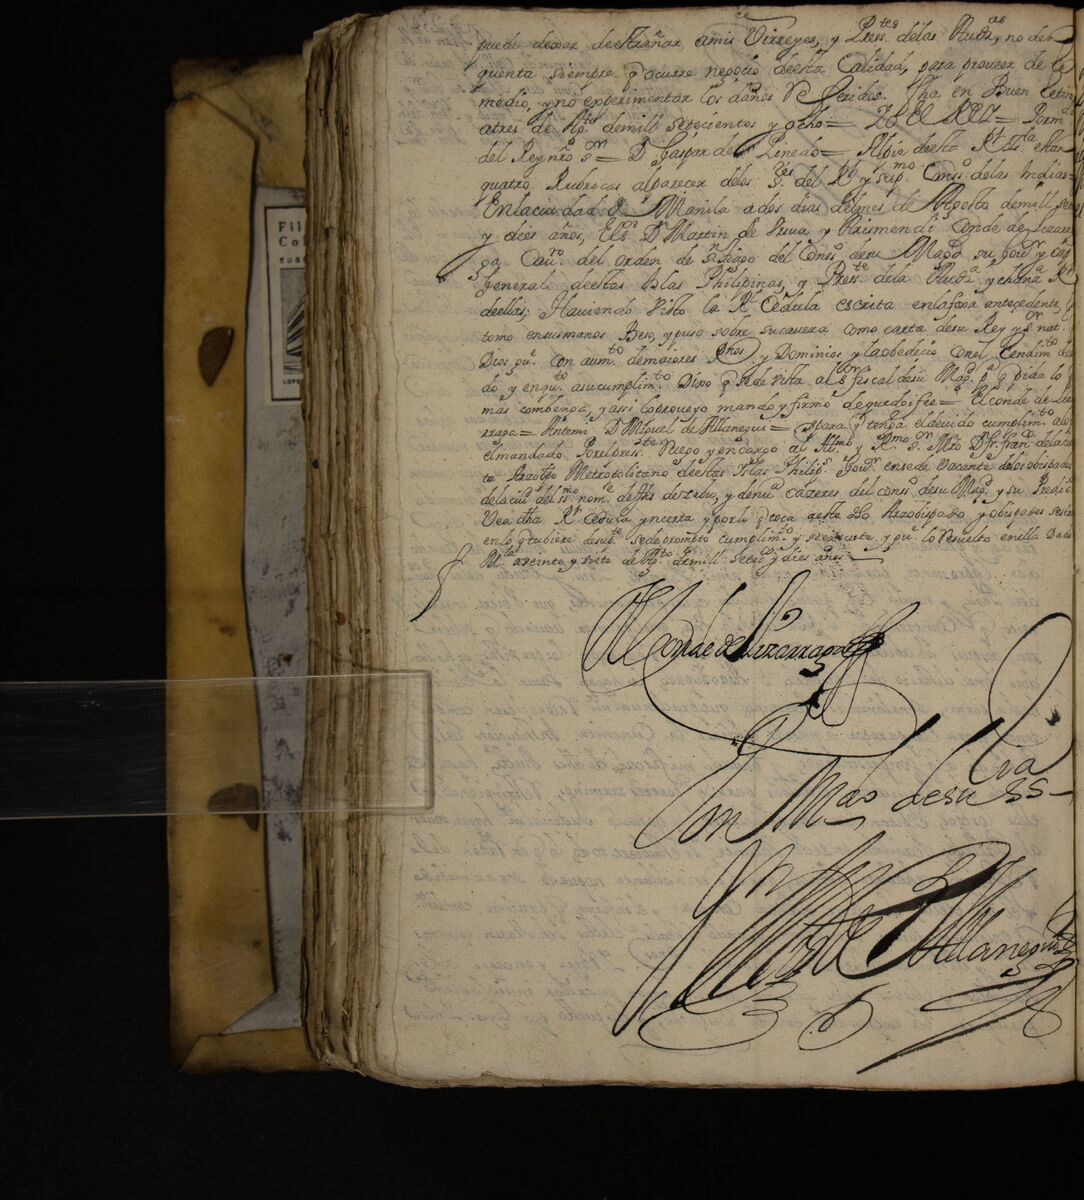 puede dexar de estrañar a mis Virreyes, y Press.tes de las Aud.as, no den
quenta siempre q ocurre negocio de esta Calidad, para proveer de re
medio, y nó experimentar los daños Referidos. fha en Buen Retiro
a tres de Ag.to de mill setecientos y ocho= YO EL REY= Por m.do
del Rey nrõ s.or= D. Gaspar de Pinedo= Al pie de esta R.l Zed.la estan
quatro Rubricas al parecer de los S.res del R.l y sup.mo Cons.o de las Indias=
En la ciudad de Manila a dos dias del mes de Agosto de mill sete
y diez años, El s.or D. Martin de Vrsua y Arismendi Conde de Lizarra
ga Cau.ro del orden de S.n tiago del Cons.o de su Mag.d su gov.r y cap.n
general de estas Islas Philipinas, y Press.te de la Aud.a y chan.a R.l
de ellas; Haviendo visto la R.l Cedula escrita en la foxa antecedente, la
tomo en sus manos Beso, y puso sobre su cavesa como carta de su Rey y s.or nat.l
Dios gu.e con aum.to de maiores Rnos, y Dominios y la obedecio con el Rendim.to devi
do y en qu.to a su cumplim.to Dixo q se de vista al s.or fiscal de su Mag.d p.a q pida lo q
mas combenga, y assi lo proveyo mando y firmo de que doi fee= El conde de Liza
rraga= Antemi D. Miguel de Allanegui= para q tenga el devido cumplim.to
el mandado Por el press.te Ruego y encargo al Ill.mo y R.mo S.or Mrõ D. fr. fran.co de la cues
ta Arzobpo Metropolitano de estas Yslas Philip.s Gov.r en sede vacante de los obispados
de la ciu.d del ss.mo nom.e de Jhs de zebu, y de nu.a cazeres del cons.o de su Mag.d y su Predic.r
Vea dha R.l cedula ynserta y por lo q toca a este dho Arzobispado y obispados
en lo q tubiere de su p.te se de prompto cumplim.to y se execute, y gu.e lo Resuelto en ella Dado
M.la a veinte y siete de Ag.to de mill setec.s y diez años=
El Conde de Lizarraga
Por Mdo de su ss.ria
Mig.l de Allanegui